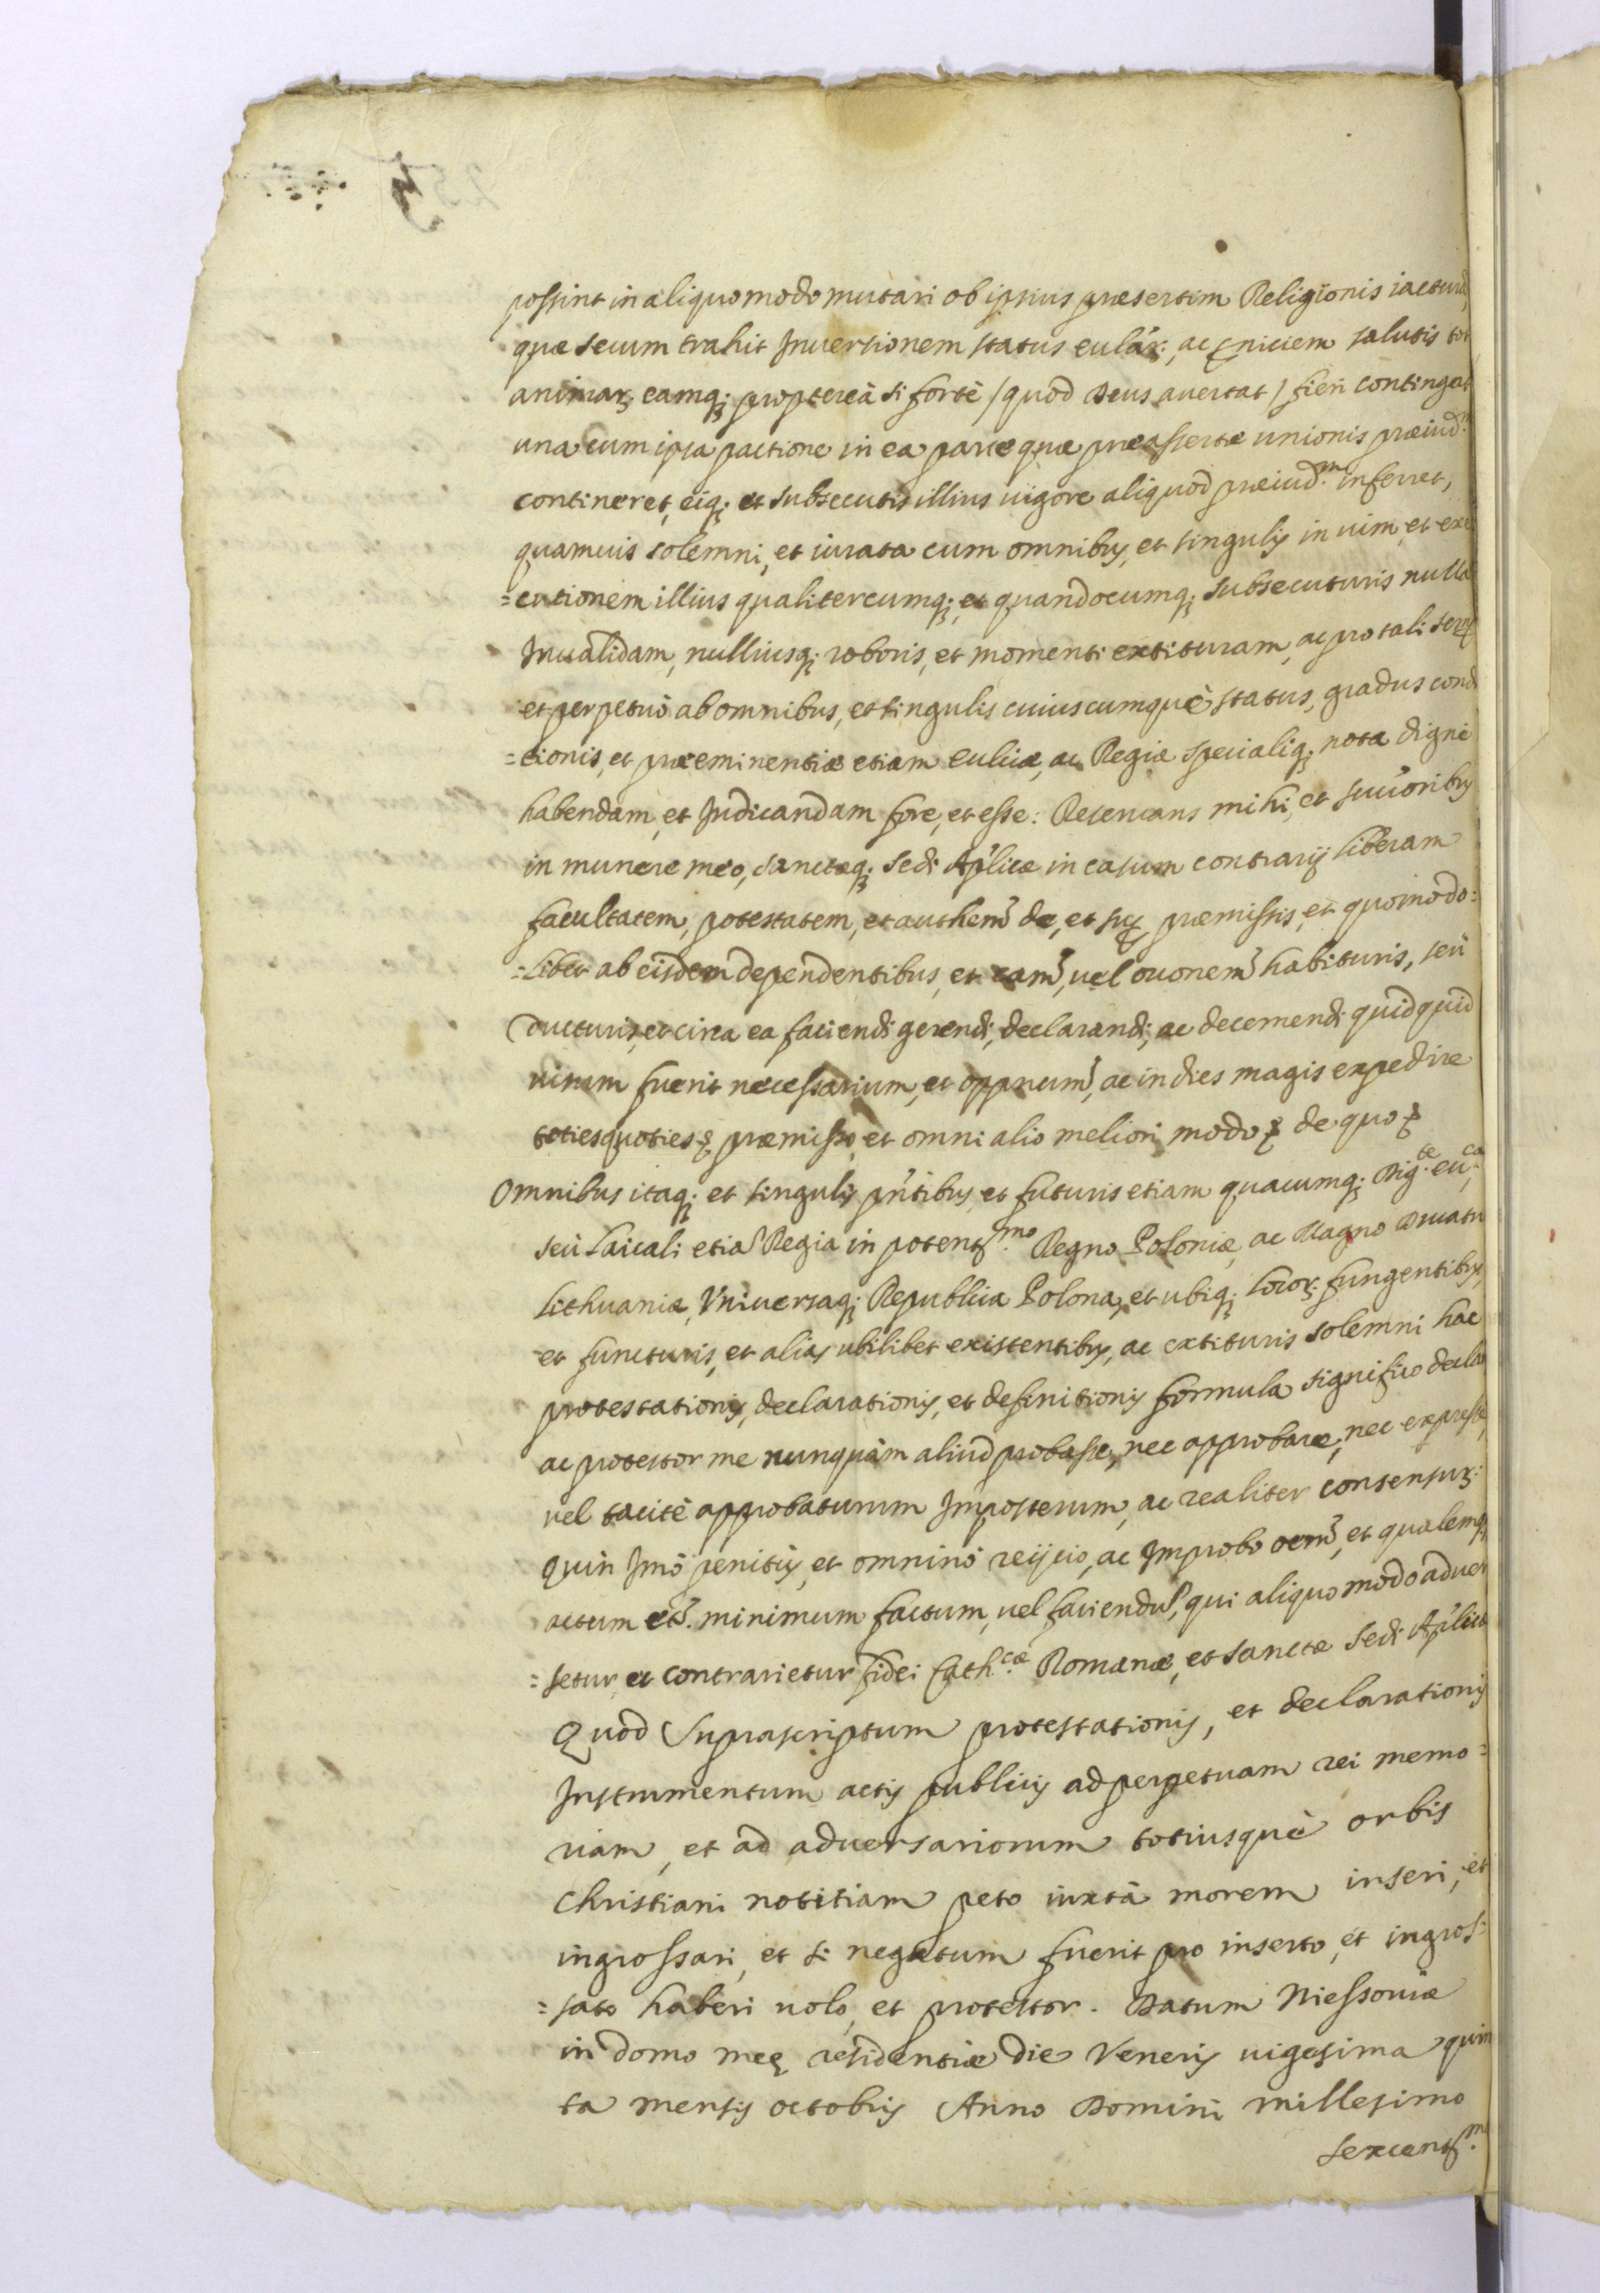 possint in aliquo modo mutari ob ipsius præsertim Religionis iacturã,
quæ secum trahit Inversionem status
animarꝫ eamqꝫ proptereà si fortè (quod Deus auertat) fieri contingat
una cum ipsa pactione in ea parte quæ preassertæ unionis præiud.m
contineret, eiqꝫ et subsecutis illius uigore aliquod præiud.m inferret,
quamuis solemni, et iurata cum omnibus, et singulis in uim, et exe
=cutionem illius qualitercumqꝫ, et quandocumqꝫ subsecuturis nullã
Inualidam, nulliusqꝫ roboris, et momenti extituram, ac pro tali
et perpetuò ab omnibus, et singulis cuiuscumquè status, gradus condi
=tionis, et præeminentiæ etiam ac Regiæ specialiqꝫ nota dignè
habendam, et Iudicandam fore, et esse: Reseruans mihi, et
in munere meo, sanctæqꝫ Sedi Ap'licæ in casum contrarij liberam
facultatem, potestatem, et de, et præmissis, et quomodo:
=libet ab eisdem dependentibus, et uel habituris, seù
ducturis, et circa ea faciendi gerendi, declarandi, ac decernendi quidquid
uisum fuerit necessarium, et ac in dies magis expedire
toties quoties præmisso, et omni alio meliori modo de quo
Omnibus itaqꝫ et singulis p'ntibus, et futuris etiam quacumqꝫ Dig.te
seù Laicali etiã Regia in potentss.mo Regno Poloniæ, ac Magno Ducatu
Lithuaniæ, Vniuersaqꝫ Republica Polona, et ubiqꝫ locorꝫ fungentibus,
et functuris, et alias ubilibet existentibus, ac extituris solemni hac
protestationis, declarationis, et definitionis formula significo declaro
ac protestor me nunquàm aliud probasse, nec approbare, nec expressè,
uel tacitè approbaturum Imposterum, ac realiter consensurꝫ:
Quin Imò penitùs, et omninò reijcio, ac Improbo oem, et qualemqꝫ
actum minimum factum, uel faciendũ, qui aliquo modo aduer
=setur, et contrarietur fidei Cath.cæ Romanæ, et sanctæ Sedi Ap'licæ
Quod Suprascriptum protestationis, et declarationis
Instrumentum actis publicis ad perpetuam rei memo=
riam, et ad aduersariorum totiusquè orbis
Christiani notitiam peto iuxtà morem inseri, et
ingrossari, et si negatum fuerit pro inserto, et ingros=
=sato haberi uolo, et protestor. Datum Niessouiæ
in domo meę residentiæ die Veneris uigesima quin
ta mensis octobris Anno Domini millesimo
sexcentss.mo